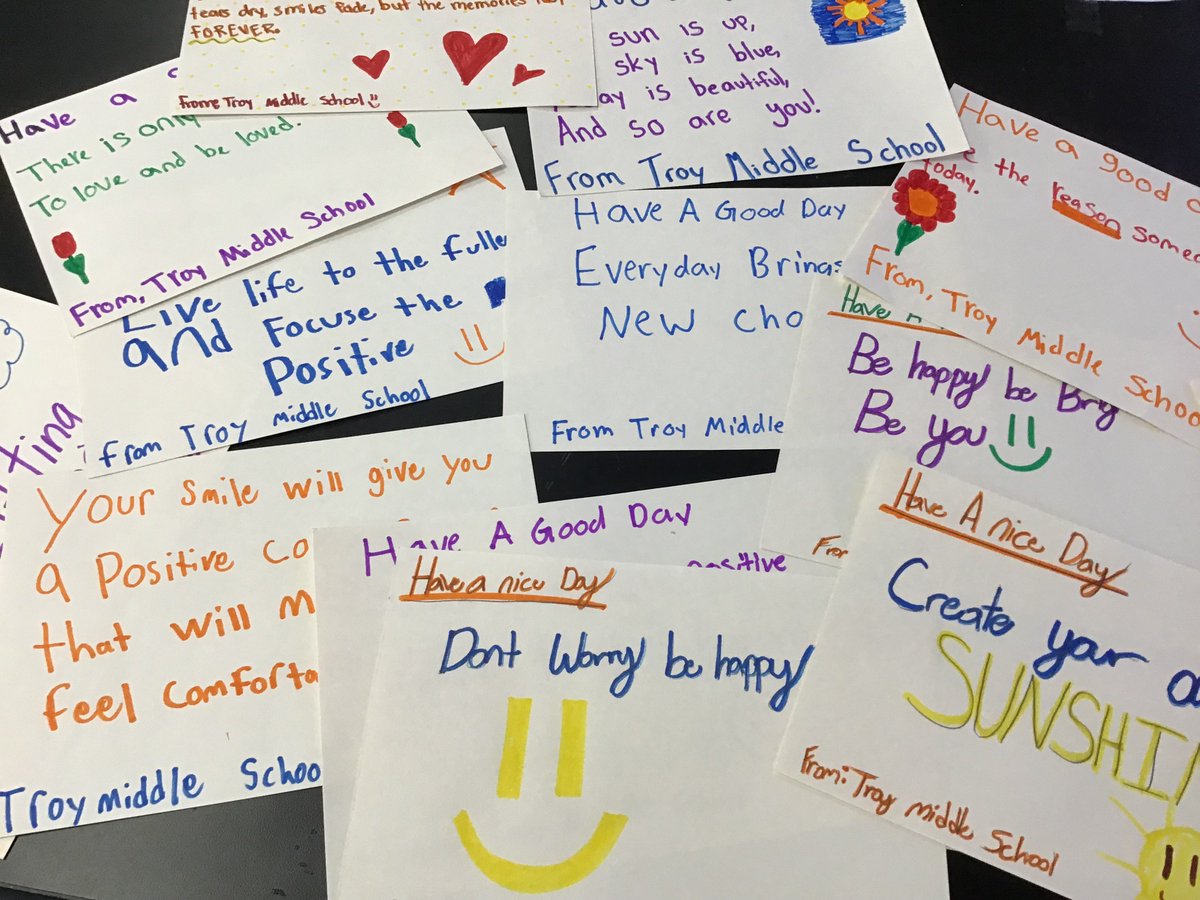 tears dry, smiles fade, but the memories
FOREVER.
From: Troy Middle School
sun is up,
sky is blue,
is beautiful,
And so are you!
From Troy Middle School
Have a
There is only
To love and be loved.
From, Troy Middle School
Have a good
the reason
today.
From, Troy Middle School
Live life to the
and Focuse the
Positive
From Troy middle School
Have A Good Day
Everyday Brings
New
From Troy Middle
Have
Be happy be
Be you
From
Xina
Your smile will give you
a Positive
that will
feel
Troy middle School
Have A Good Day
positive
Have a nice Day
Dont Worry be happy
Have A nice Day
Create your
From: Troy middle School